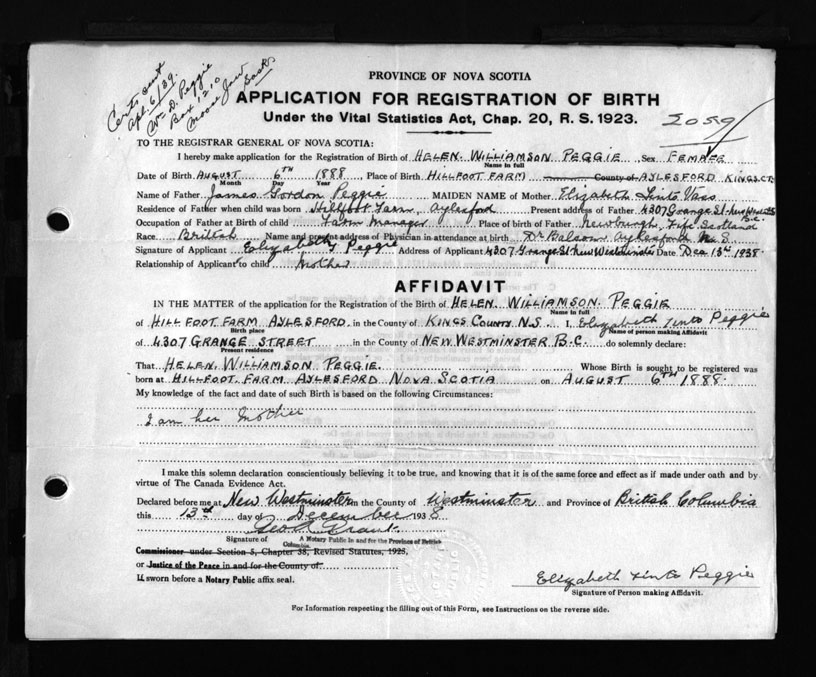 Certs sent
Apl. 6/39.
Wm D. Peggie
Box 1210
Moose Jaw
Sask
PROVINCE OF NOVA SCOTIA
APPLICATION FOR REGISTRATION OF BIRTH
Under the Vital Statistics Act, Chap. 20, R. S. 1923.
2059
TO THE REGISTRAR GENERAL OF NOVA SCOTIA:
I hereby make application for the Registration of Birth of HELEN. WILLIAMSON PEGGIE Sex FEMALE
Name in full
Date of Birth AUGUST 6TH 1888 Place of Birth HILLFOOT FARM County of AYLESFORD KINGS.CT.
Month Day Year
Name of Father James Gordon Peggie MAIDEN NAME of Mother Elizabeth Linto Vass
Residence of Father when child was born Hillfoot Farm, Aylesford Present address of Father 4307 Grange St. New Westm B.C.
Occupation of Father at Birth of child Farm Manager Place of birth of Father Newburgh, Fife Scotland
Race British Name and present address of Physician in attendance at birth Dr Balsom Aylesford N.S.
Signature of Applicant Elizabeth Peggie Address of Applicant 4307 Grange St New Westminster Date Dec 13th 1938
Relationship of Applicant to child Mother
AFFIDAVIT
IN THE MATTER of the application for the Registration of the Birth of HELEN. WILLIAMSON. PEGGIE
Name in full
of HILLFOOT FARM AYLESFORD. in the County of KINGS COUNTY N.S. I, Elizabeth Linto Peggie
Birth place Name of person making Affidavit
of 4307 GRANGE STREET in the County of NEW WESTMINSTER B.C. do solemnly declare:
Present residence
That HELEN. WILLIAMSON PEGGIE. Whose Birth is sought to be registered was
born at HILLFOOT. FARM. AYLESFORD NOVA SCOTIA on AUGUST 6TH 1888.
My knowledge of the fact and date of such Birth is based on the following Circumstances:
I am her Mother
I make this solemn declaration conscientiously believing it to be true, and knowing that it is of the same force and effect as if made under oath and by
virtue of The Canada Evidence Act.
Declared before me at New Westminster in the County of Westminster and Province of British Columbia
this 13th day of December 1938
Geo R Grant
Signature of A Notary Public in and for the Province of British
Columbia.
Commissioner under Section 5, Chapter 38, Revised Statutes, 1923,
or Justice of the Peace in and for the County of
If sworn before a Notary Public affix seal.
Elizabeth Linto Peggie
Signature of Person making Affidavit.
For Information respecting the filling out of this Form, see Instructions on the reverse side.